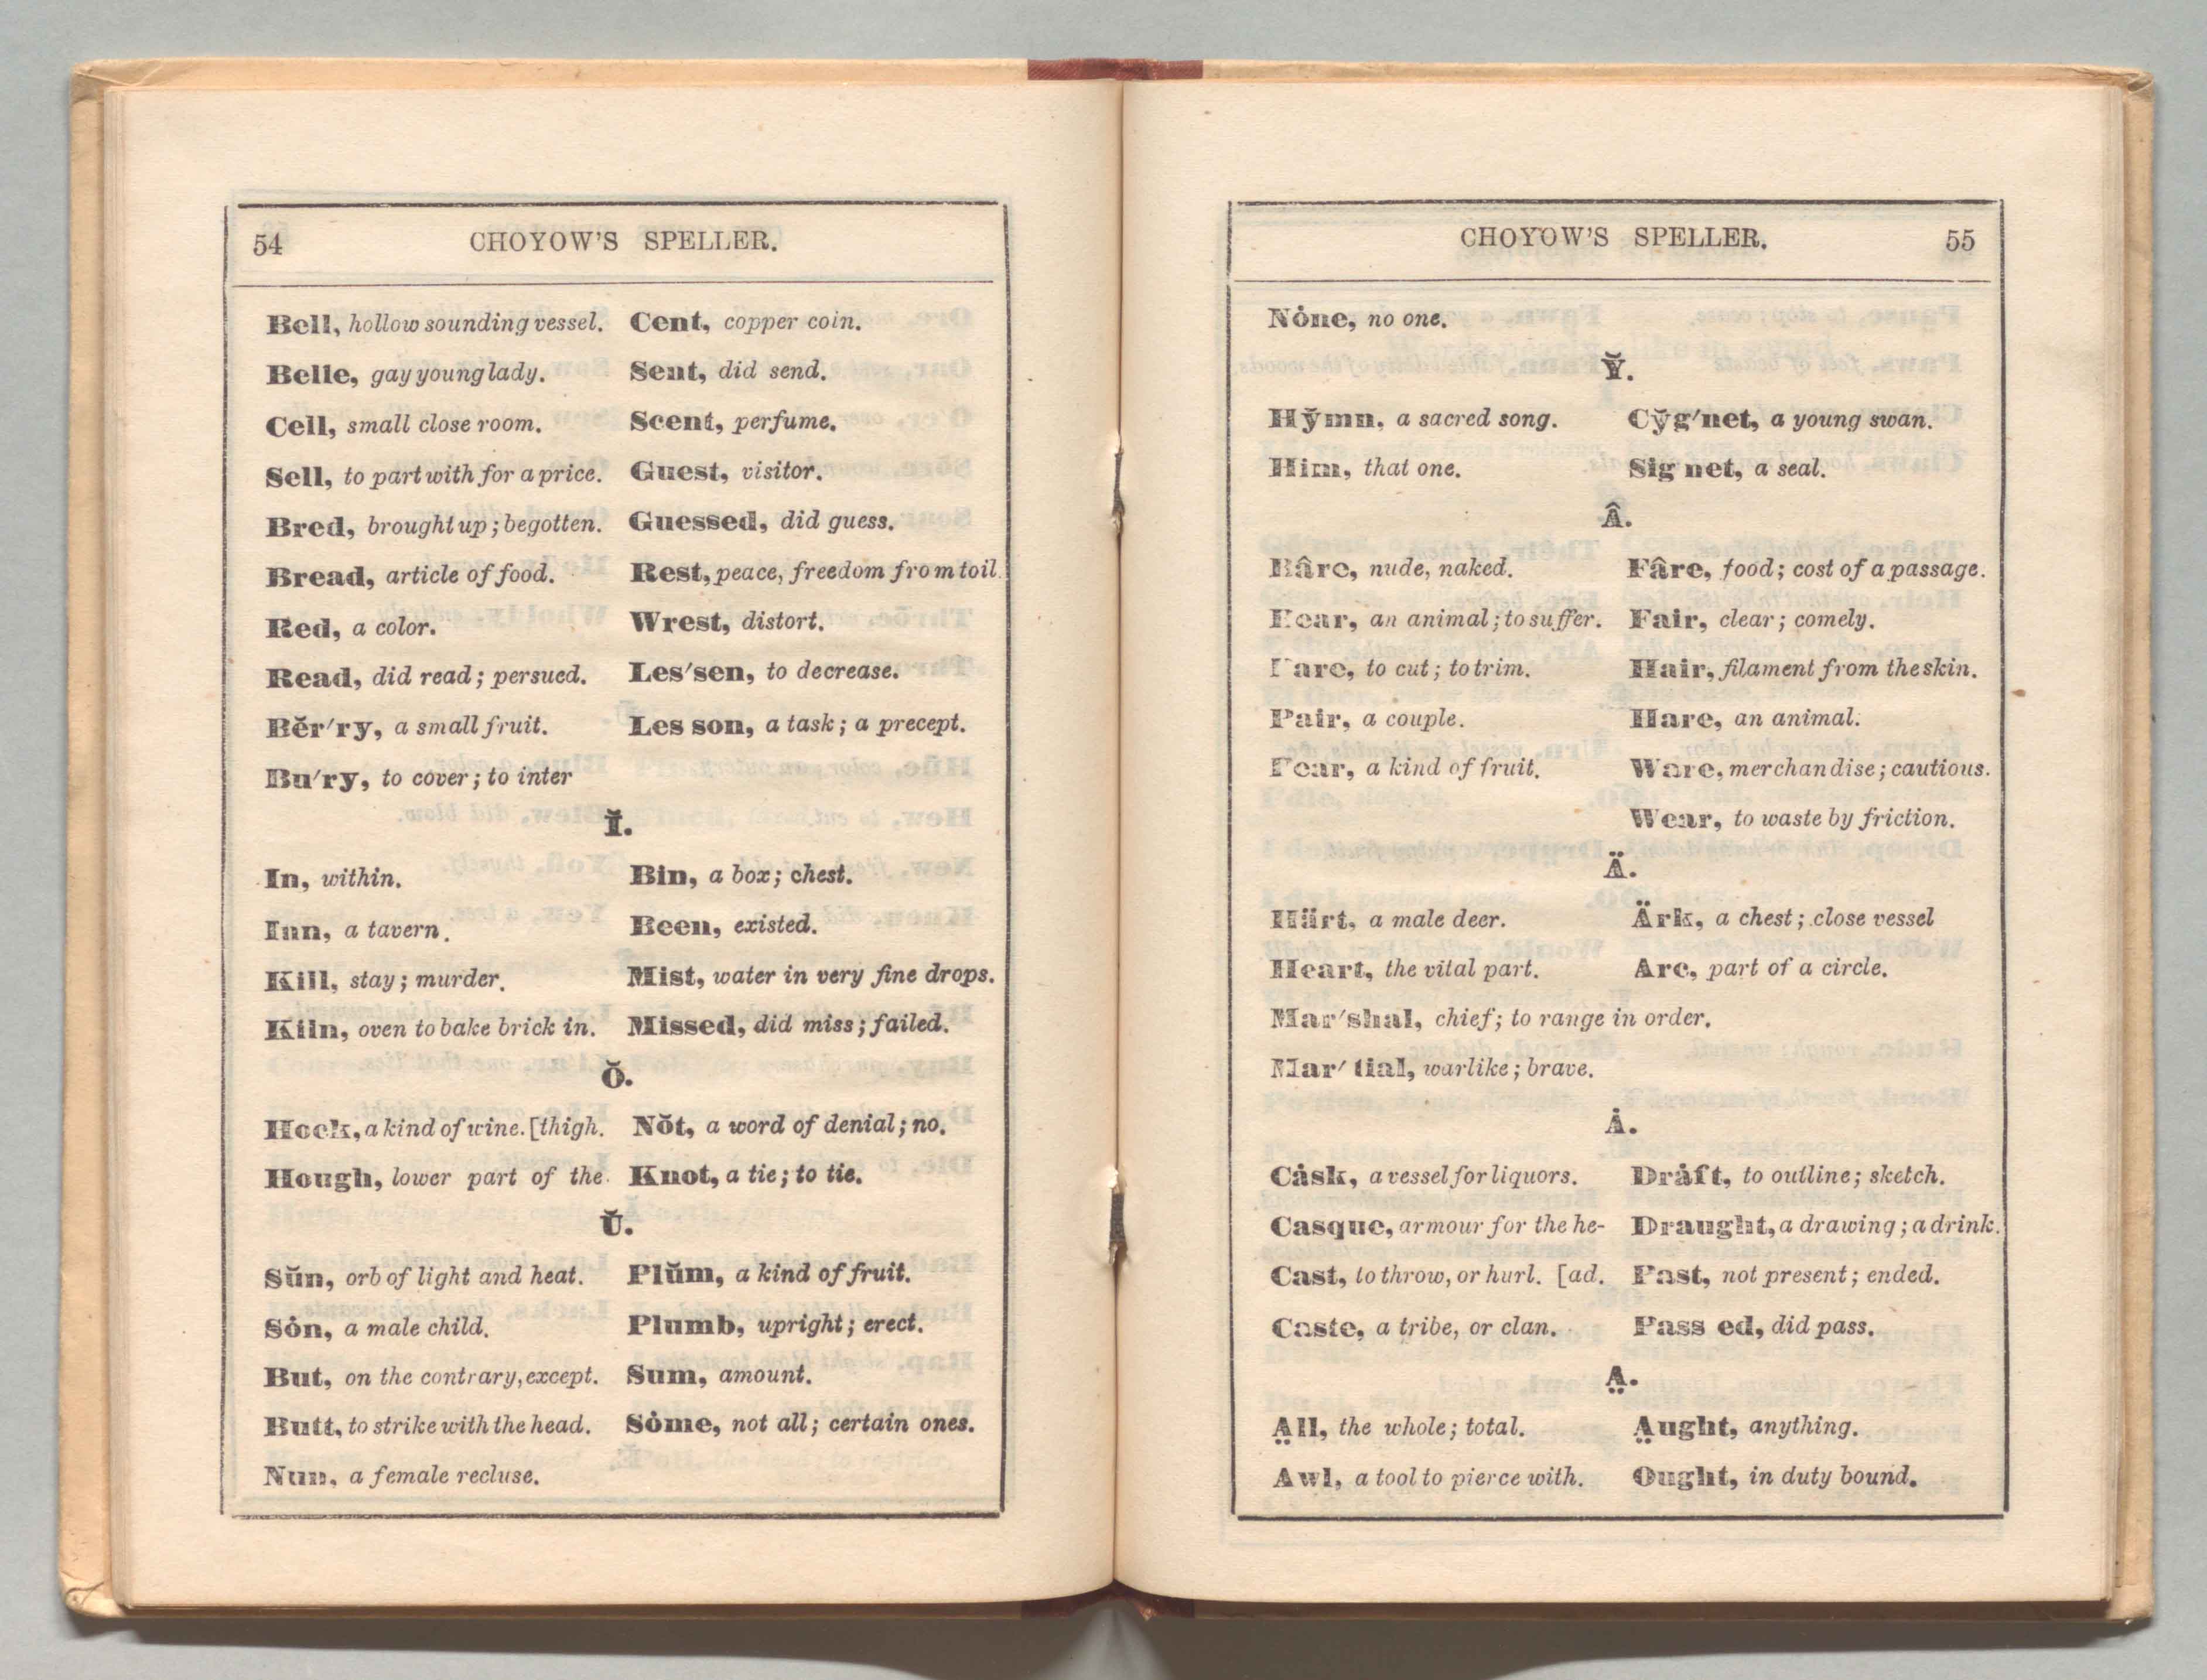 54 CHOYOW'S SPELLER.
Bell, hollow sounding vessel.
Belle, gay young lady.
Cell, small close room.
Sell, to part with for a price.
Bred, brought up; begotten.
Bread, article of food.
Red, a color.
Read, did read; persued.
Bĕr′ry, a small fruit.
Bu′ry, to cover; to inter
Cent, copper coin.
Sent, did send.
Scent, perfume.
Guest, visitor.
Guessed, did guess.
Rest, peace, freedom from toil.
Wrest, distort.
Les′sen, to decrease.
Les son, a task; a precept.
Ĭ.
In, within.
Inn, a tavern.
Kill, stay; murder.
Kiln, oven to bake brick in.
Bin, a box; chest.
Been, existed.
Mist, water in very fine drops.
Missed, did miss; failed.
Ŏ.
Hock, a kind of wine. [thigh.
Hough, lower part of the
Nŏt, a word of denial; no.
Knot, a tie; to tie.
Ŭ.
Sŭn, orb of light and heat.
Sȯn, a male child.
But, on the contrary, except.
Butt, to strike with the head.
Nun, a female recluse.
Plŭm, a kind of fruit.
Plumb, upright; erect.
Sum, amount.
Sȯme, not all; certain ones.
CHOYOW'S SPELLER. 55
Nȯne, no one.
Y̆.
Hy̆mn, a sacred song.
Him, that one.
Cy̆g′net, a young swan.
Sig net, a seal.
Â.
Bâre, nude, naked.
Bear, an animal; to suffer.
Pare, to cut; to trim.
Pair, a couple.
Pear, a kind of fruit.
Fâre, food; cost of a passage.
Fair, clear; comely.
Hair, filament from the skin.
Hare, an animal.
Ware, merchandise; cautious.
Wear, to waste by friction.
Ä.
Härt, a male deer.
Heart, the vital part.
Ärk, a chest; close vessel
Arc, part of a circle.
Mar′shal, chief; to range in order.
Mar′ tial, warlike; brave.
Ȧ.
Cȧsk, a vessel for liquors.
Casque, armour for the he-
Cast, to throw, or hurl. [ad.
Caste, a tribe, or clan.
Drȧft, to outline; sketch.
Draught, a drawing; a drink.
Past, not present; ended.
Pass ed, did pass.
A̤.
A̤ll, the whole; total.
Awl, a tool to pierce with.
A̤ught, anything.
Ought, in duty bound.